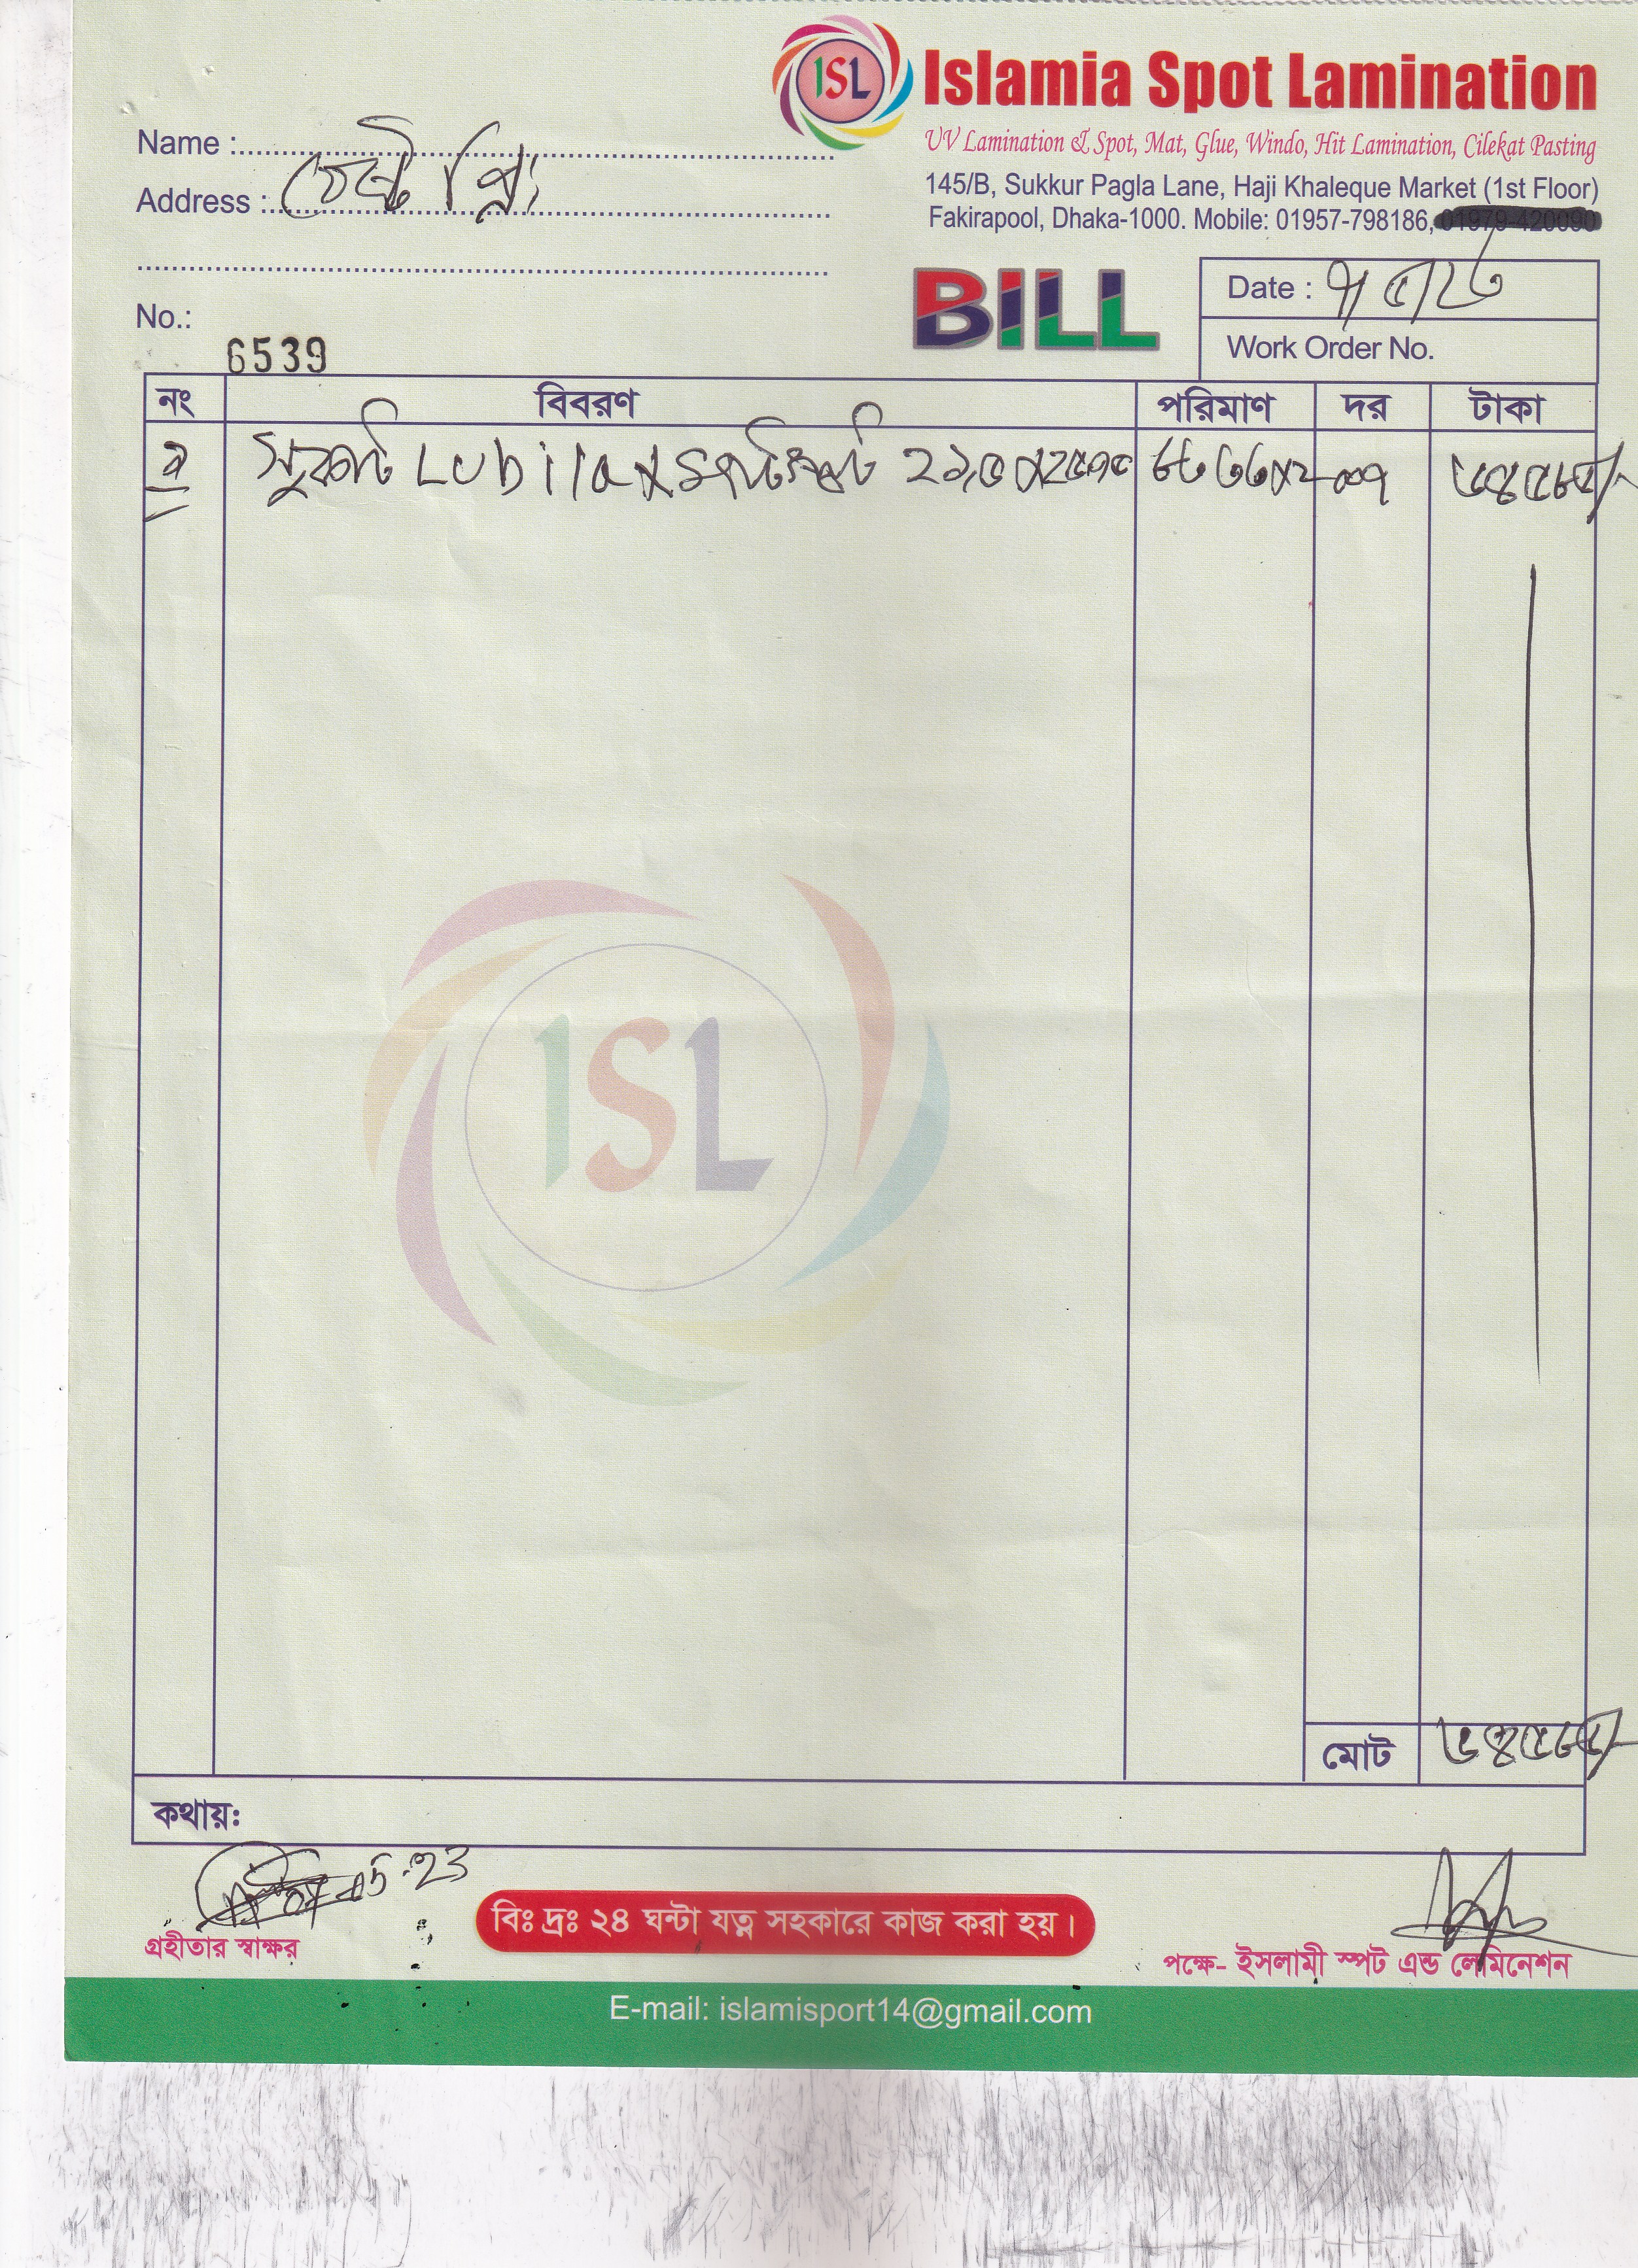 ISL Islamia Spot Lamination
UV Lamination & Spot, Mat, Glue, Windo, Hit Lamination, Cilekat Pasting
145/B, Sukkur Pagla Lane, Haji Khaleque Market (1st Floor)
Fakirapool, Dhaka-1000. Mobile: 01957-798186, 01979-420090
Name :
Address :
BILL
Date : ৭/৫/২৩
Work Order No.
No.:
6539
নং বিবরণ পরিমাণ দর টাকা
Lubilax
ISL
মোট
কথায়ঃ
05-23
গ্রহীতার স্বাক্ষর
বিঃ দ্রঃ ২৪ ঘন্টা যত্ন সহকারে কাজ করা হয়।
পক্ষে- ইসলামী স্পট এন্ড লেমিনেশন
E-mail: islamisport14@gmail.com